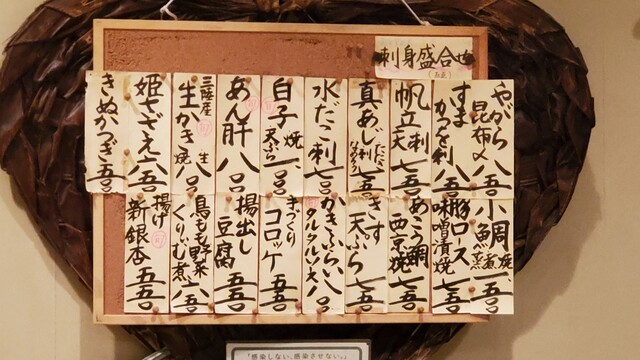 刺身盛合せ
やがら昆布〆 八五〇
すまかつを刺 八五〇
帆立 刺 天 七五〇
真あじ たたき なめろう 七五〇
水だこ刺 七五〇
白子 焼 天ぷら 一〇〇〇
あん肝 八〇〇
三陸産 生かき 生 焼 八〇〇
姫さざえ 六五〇
きぬかつぎ 五五〇
小鯛 焼 煮 蒸
豚ロース味噌漬焼 七五〇
あこう鯛西京焼 七五〇
きす天ぷら 七五〇
かきふらい タルタルソース 八〇〇
手づくりコロッケ 五五〇
揚出し豆腐 五五〇
鳥もも野菜くりぃむ煮 八五〇
揚げ新銀杏 五五〇
「感染しない、感染させない。」